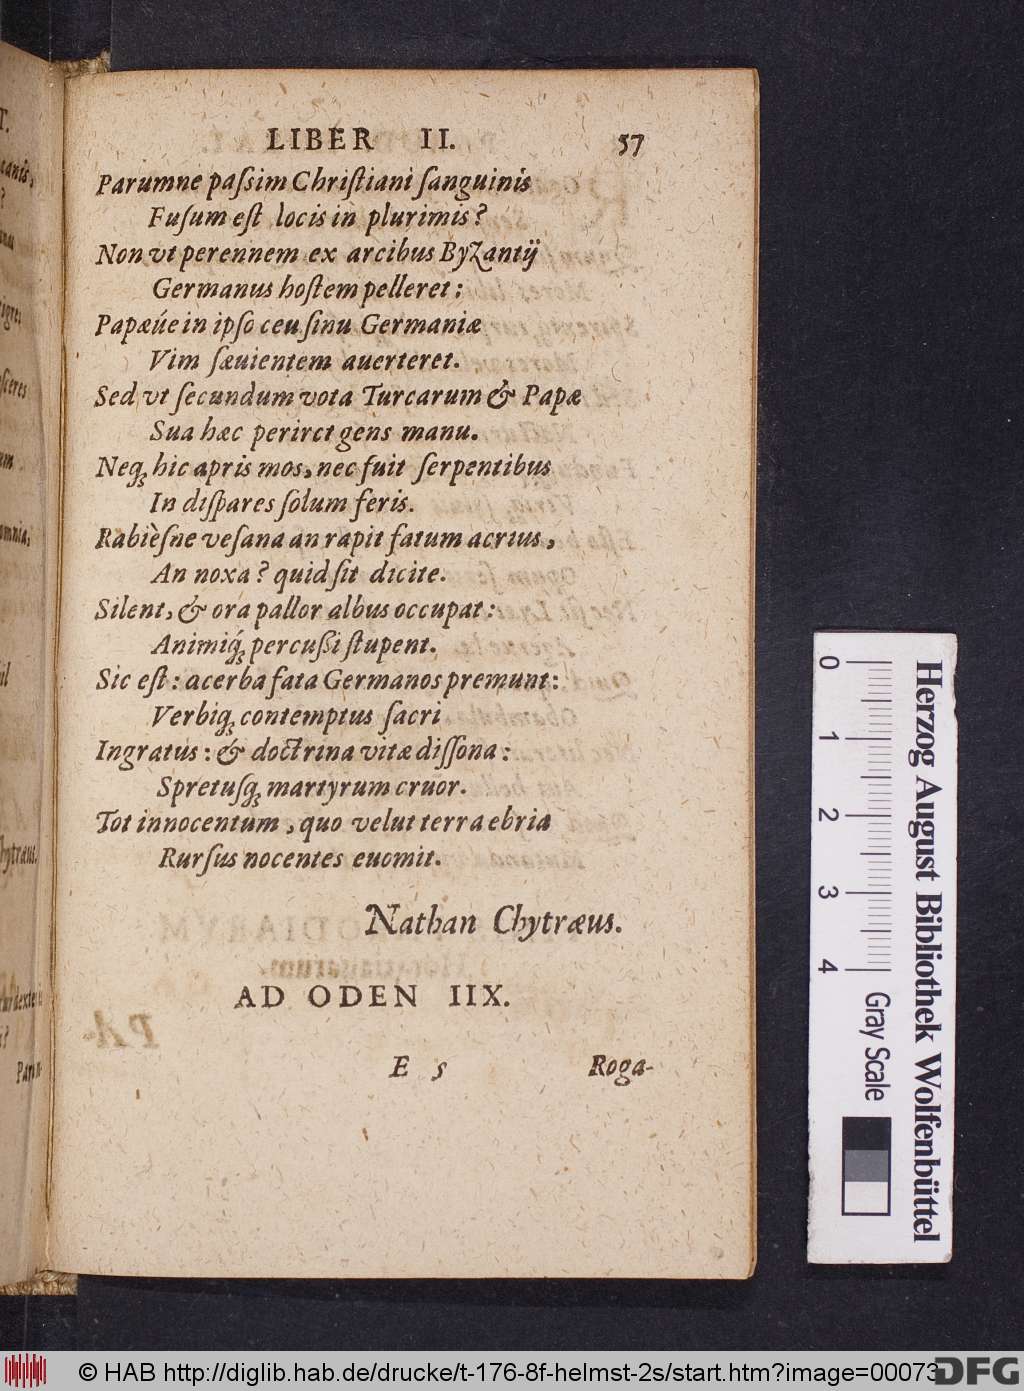 LIBER II. 57
Parumne paſsim Chriſtiani ſanguinis
Fuſum eſt locis in plurimis?
Non vt perennem ex arcibus Byzantij
Germanus hoſtem pelleret:
Papæúe in ipſo ceu ſinu Germaniæ
Vim ſæuientem auerteret.
Sed vt ſecundum vota Turcarum & Papæ
Sua hæc periret gens manu.
Neq́; hic apris mos, nec fuit ſerpentibus
In diſpares ſolum feris.
Rabièſne veſana an rapit fatum acrius,
An noxa? quid ſit dicite.
Silent, & ora pallor albus occupat:
Animiq́; percuſſi ſtupent.
Sic eſt: acerba fata Germanos premunt:
Verbiq; contemptus ſacri
Ingratus: & doctrina vitæ diſſona:
Spretuſq; martyrum cruor.
Tot innocentum, quo velut terra ebria
Rurſus nocentes euomit.
Nathan Chytræus.
AD ODEN IIX.
E 5 Roga-
Herzog August Bibliothek Wolfenbüttel
0 1 2 3 4 Gray Scale
© HAB http://diglib.hab.de/drucke/t-176-8f-helmst-2s/start.htm?image=00073
DFG